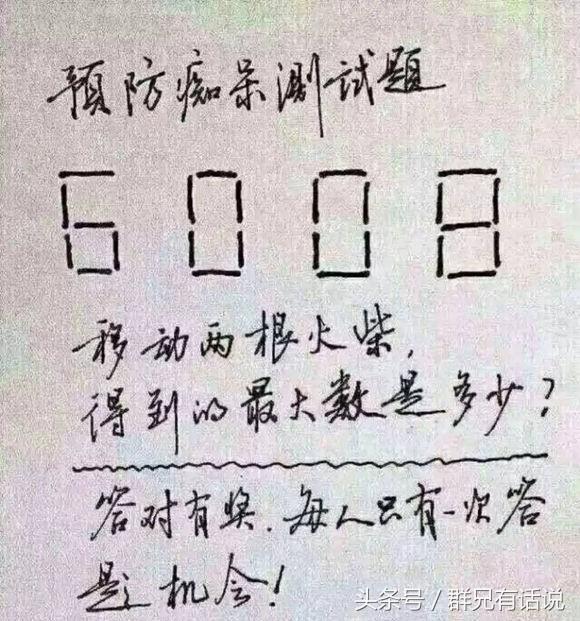 预防痴呆测试题
6008
移动两根火柴,
得到的最大数是多少?
答对有奖.每人只有一次答
题机会!
头条号/群兄有话说